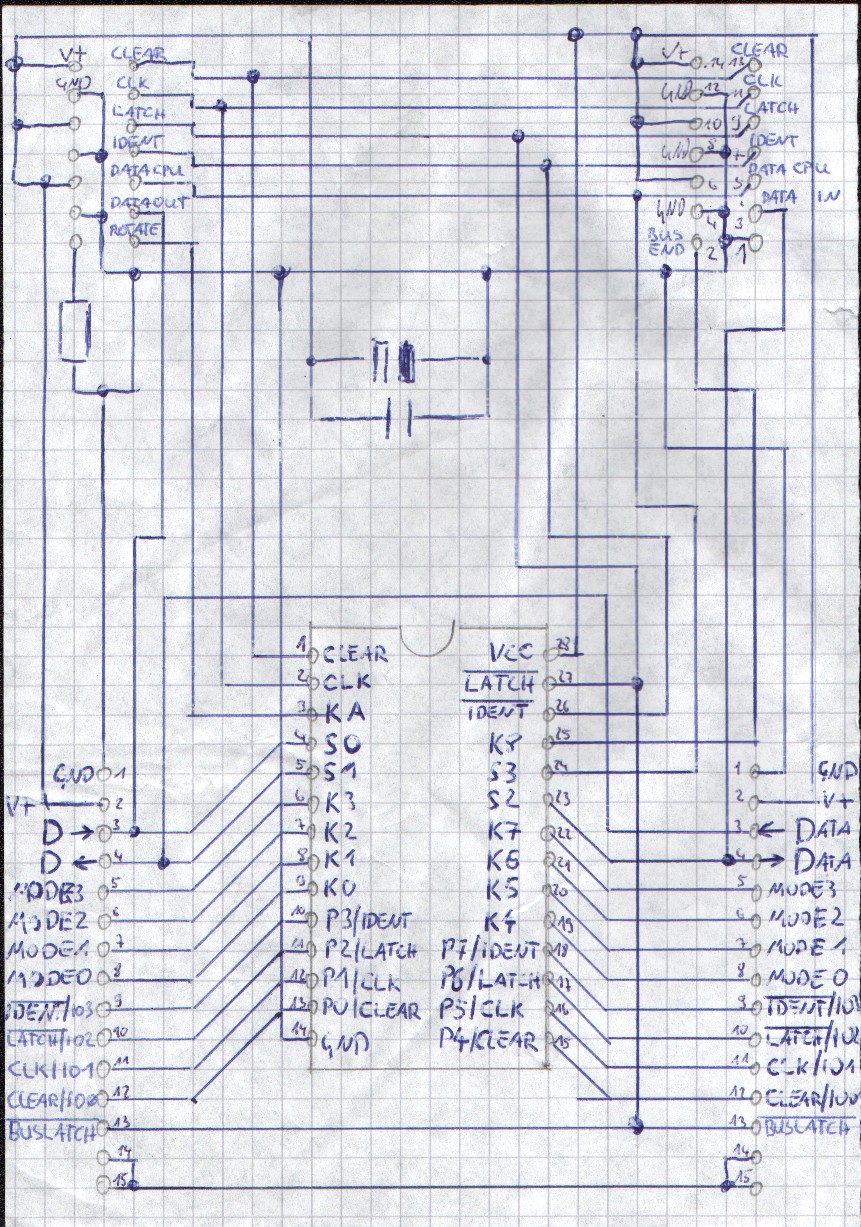 V+ CLEAR
GND CLK
LATCH
IDENT
DATA CPU
DATA OUT
ROTATE
V+ 14 13 CLEAR
GND 12 11 CLK
10 9 LATCH
GND 8 7 IDENT
6 5 DATA CPU
GND 4 3 DATA IN
BUS END 2 1
1 CLEAR VCC 28
2 CLK LATCH 27
3 KA IDENT 26
4 S0 K8 25
5 S1 S3 24
6 K3 S2 23
7 K2 K7 22
8 K1 K6 21
9 K0 K5 20
10 P3/IDENT K4 19
11 P2/LATCH P7/IDENT 18
12 P1/CLK P6/LATCH 17
13 P0/CLEAR P5/CLK 16
14 GND P4/CLEAR 15
GND 1
V+ 2
D → 3
D ← 4
MODE3 5
MODE2 6
MODE1 7
MODE0 8
IDENT/IO3 9
LATCH/IO2 10
CLK/IO1 11
CLEAR/IO0 12
BUSLATCH 13
14
15
1 GND
2 V+
3 ← DATA
4 → DATA
5 MODE3
6 MODE2
7 MODE1
8 MODE0
9 IDENT/IO3
10 LATCH/IO2
11 CLK/IO1
12 CLEAR/IO0
13 BUSLATCH
14
15